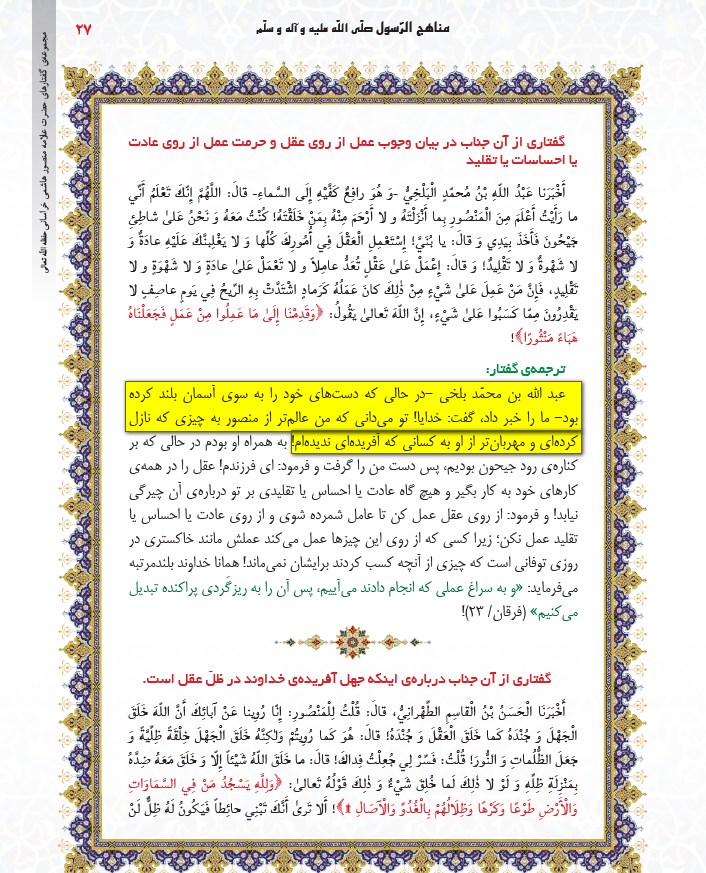 مناهج الرّسول صلّی اللّه علیه و آله و سلّم
۲۷
مجموعه‌ی گفتارهای حضرت علامه منصور هاشمی خراسانی حفظه الله تعالی
گفتاری از آن جناب در بیان وجوب عمل از روی عقل و حرمت عمل از روی عادت
یا احساسات یا تقلید
أَخْبَرَنا عَبْدُ اللّهِ بْنُ مُحمّدٍ الْبَلْخِيُّ -وَ هُوَ رافِعٌ كَفَّيْهِ إِلَى السَّماءِ- قالَ: اللَّهُمَّ إِنَّكَ تَعْلَمُ أَنّي
ما رَأَيْتُ أَعْلَمَ مِنَ الْمَنْصُورِ بِما أَنْزَلْتَهُ و لا أَرْحَمَ مِنْهُ بِمَنْ خَلَقْتَهُ! كُنْتُ مَعَهُ وَ نَحْنُ عَلیٰ شاطِئِ
جَيْحُونَ فَأَخَذَ بِيَدِي وَ قالَ: يا بُنَيَّ! إِسْتَعْمِلِ الْعَقْلَ فِي أُمُورِكَ كُلِّها وَ لا يَغْلِبَنَّكَ عَلَيْهِ عادَةٌ وَ
لا شَهْوَةٌ وَ لا تَقْلِيدٌ! وَ قالَ: إِعْمَلْ عَلیٰ عَقْلٍ تُعَدُّ عامِلاً و لا تَعْمَلْ عَلیٰ عادَةٍ وَ لا شَهْوَةٍ و لا
تَقْلِيدٍ، فَإِنَّ مَنْ عَمِلَ عَلیٰ شَيْءٍ مِنْ ذٰلِكَ كانَ عَمَلُهُ كَرَمادٍ اشْتَدَّتْ بِهِ الرِّيحُ فِي يَومٍ عاصِفٍ لا
يَقْدِرُونَ مِمّا كَسَبُوا عَلیٰ شَيْءٍ، إِنَّ اللّهَ تَعالیٰ يَقُولُ: ﴿وَقَدِمْنَا إِلَىٰ مَا عَمِلُوا مِنْ عَمَلٍ فَجَعَلْنَاهُ
هَبَاءً مَنْثُورًا﴾!
ترجمه‌ی گفتار:
عبد الله بن محمّد بلخی -در حالی که دست‌های خود را به سوی آسمان بلند کرده
بود- ما را خبر داد، گفت: خدایا! تو می‌دانی که من عالم‌تر از منصور به چیزی که نازل
کرده‌ای و مهربان‌تر از او به کسانی که آفریده‌ای ندیده‌ام! به همراه او بودم در حالی که بر
کناره‌ی رود جیحون بودیم، پس دست من را گرفت و فرمود: ای فرزندم! عقل را در همه‌ی
کارهای خود به کار بگیر و هیچ گاه عادت یا احساس یا تقلیدی بر تو درباره‌ی آن چیرگی
نیابد! و فرمود: از روی عقل عمل کن تا عامل شمرده شوی و از روی عادت یا احساس یا
تقلید عمل نکن؛ زیرا کسی که از روی این چیزها عمل می‌کند عملش مانند خاکستری در
روزی توفانی است که چیزی از آنچه کسب کردند برایشان نمی‌ماند! همانا خداوند بلندمرتبه
می‌فرماید: «و به سراغ عملی که انجام دادند می‌آییم، پس آن را به ریزگَردی پراکنده تبدیل
می‌کنیم» (فرقان/ ۲۳)!
گفتاری از آن جناب درباره‌ی اینکه جهل آفریده‌ی خداوند در ظلّ عقل است.
أَخْبَرَنَا الْحَسَنُ بْنُ الْقاسِمِ الطِّهْرانِيُّ، قالَ: قُلْتُ لِلْمَنْصُورِ: إِنّا رُوِينا عَنْ آبائِكَ أَنَّ اللّهَ خَلَقَ
الْجَهْلَ وَ جُنْدَهُ كَما خَلَقَ الْعَقْلَ وَ جُنْدَهُ! قالَ: هُوَ كَما رُوِيتُمْ وَلٰكِنَّهُ خَلَقَ الْجَهْلَ خِلْقَةً ظِلِّيَّةً وَ
جَعَلَ الظُّلُماتِ وَ النُّورَ! قُلْتُ: فَسِّرْ لِي جُعِلْتُ فِداكَ! قالَ: ما خَلَقَ اللّهُ شَيْئاً إِلّا وَ خَلَقَ مَعَهُ ضِدَّهُ
بِمَنْزِلَةِ ظِلِّهِ وَ لَوْ لا ذٰلِكَ لَما خُلِقَ شَيْءٌ وَ ذٰلِكَ قَوْلُهُ تَعالیٰ: ﴿وَلِلَّهِ يَسْجُدُ مَنْ فِي السَّمَاوَاتِ
وَالْأَرْضِ طَوْعًا وَكَرْهًا وَظِلَالُهُمْ بِالْغُدُوِّ وَالْآصَالِ ۩﴾! أَلا تَریٰ أَنَّكَ تَبْنِي حائِطاً فَيَكُونُ لَهُ ظِلٌّ لَنْ